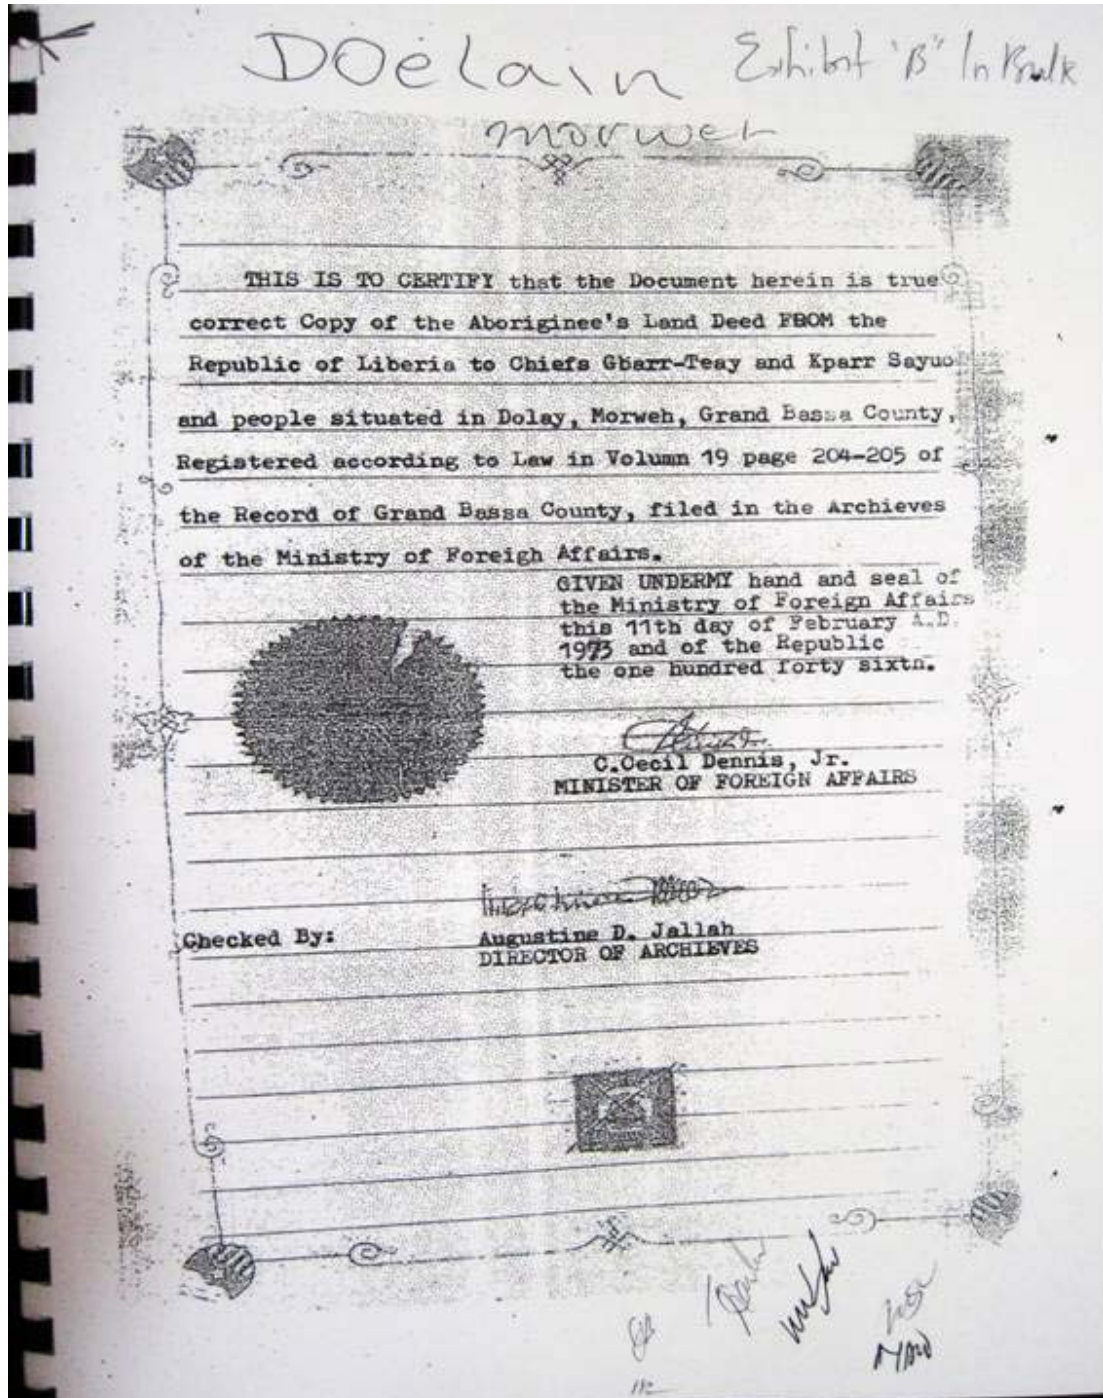 DOelain Exhibit "B" In Bulk
morweh
THIS IS TO CERTIFY that the Document herein is true
correct Copy of the Aboriginee's Land Deed FROM the
Republic of Liberia to Chiefs Gbarr-Teay and Kparr Sayuo
and people situated in Dolay, Morweh, Grand Bassa County,
Registered according to Law in Volumn 19 page 204-205 of
the Record of Grand Bassa County, filed in the Archieves
of the Ministry of Foreigh Affairs.
GIVEN UNDERMY hand and seal of
the Ministry of Foreign Affairs
this 11th day of February A.D.
1973 and of the Republic
the one hundred forty sixth.
C.Cecil Dennis, Jr.
MINISTER OF FOREIGN AFFAIRS
Checked By: Augustine D. Jallah
DIRECTOR OF ARCHIEVES